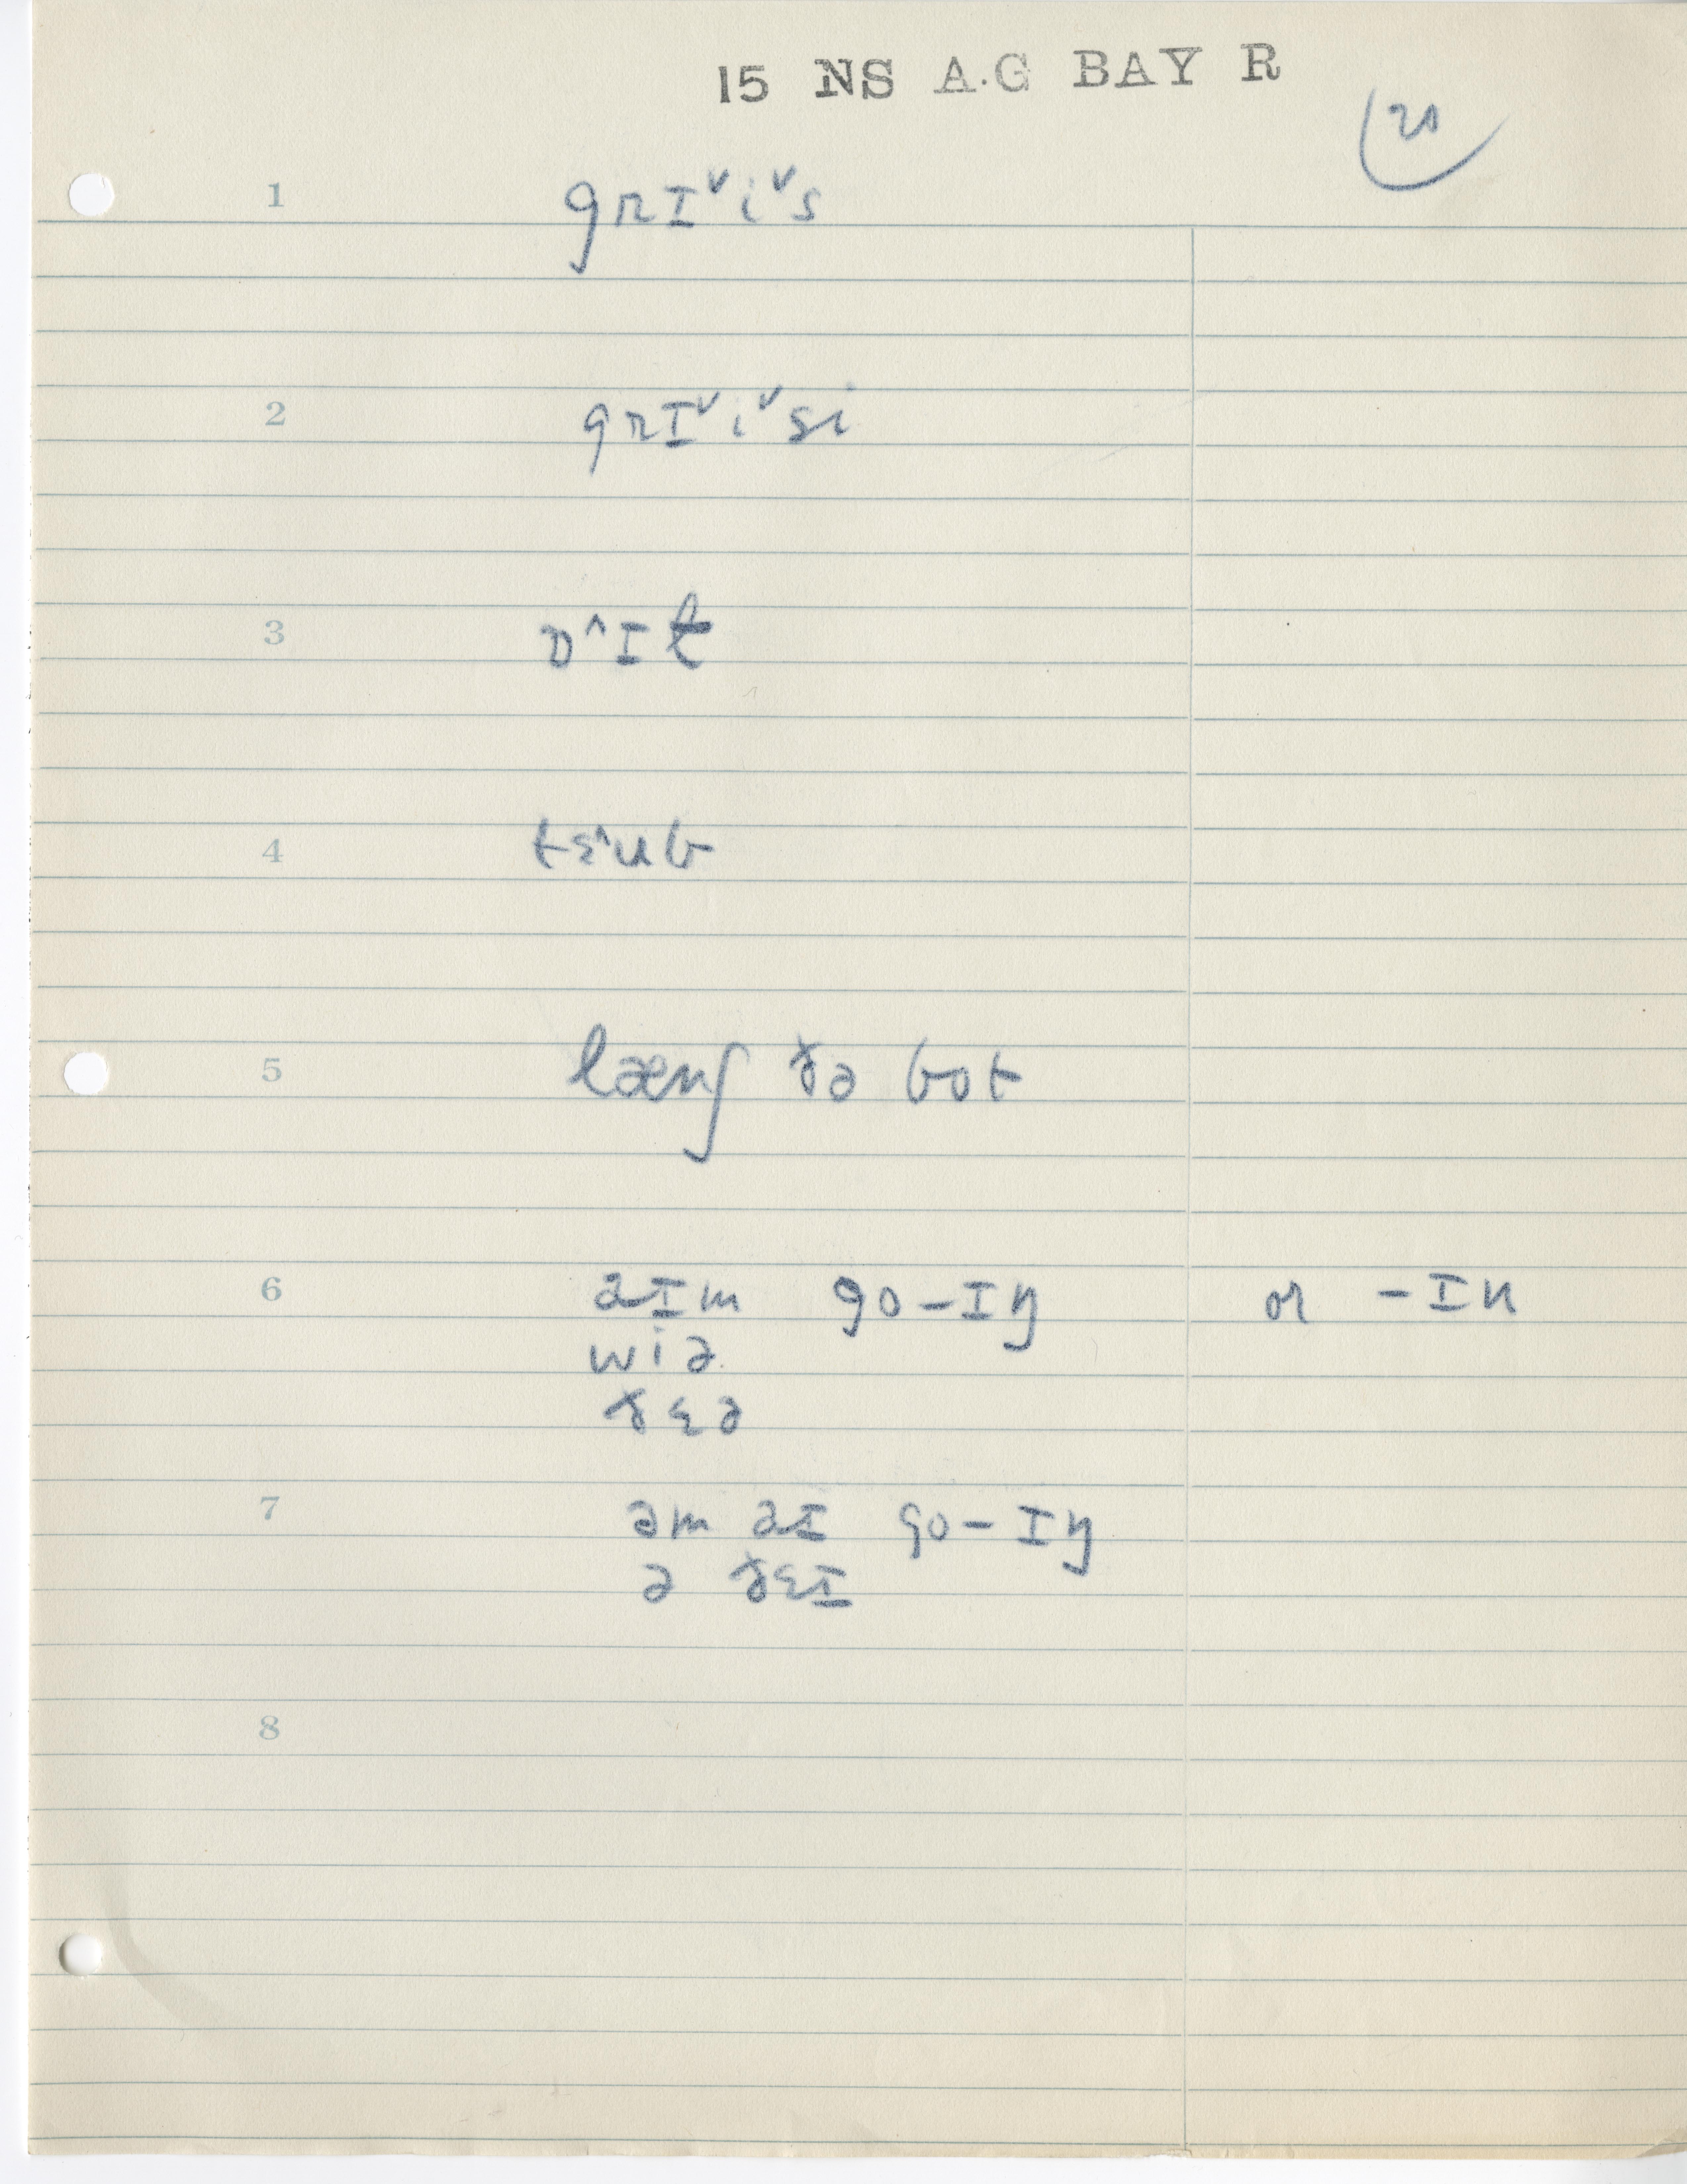 15 NS A.G BAY R
21
1 grɪˇiˇs
2 grɪˇiˇsi
3 ɒ^ɪt
4 tɛ^ub
5 lænʃ ðə bot
6 aɪm go-ɪŋ or -ɪn
wiə
ðɛə
7 əm aɪ go-ɪŋ
ə ðɛɪ
8